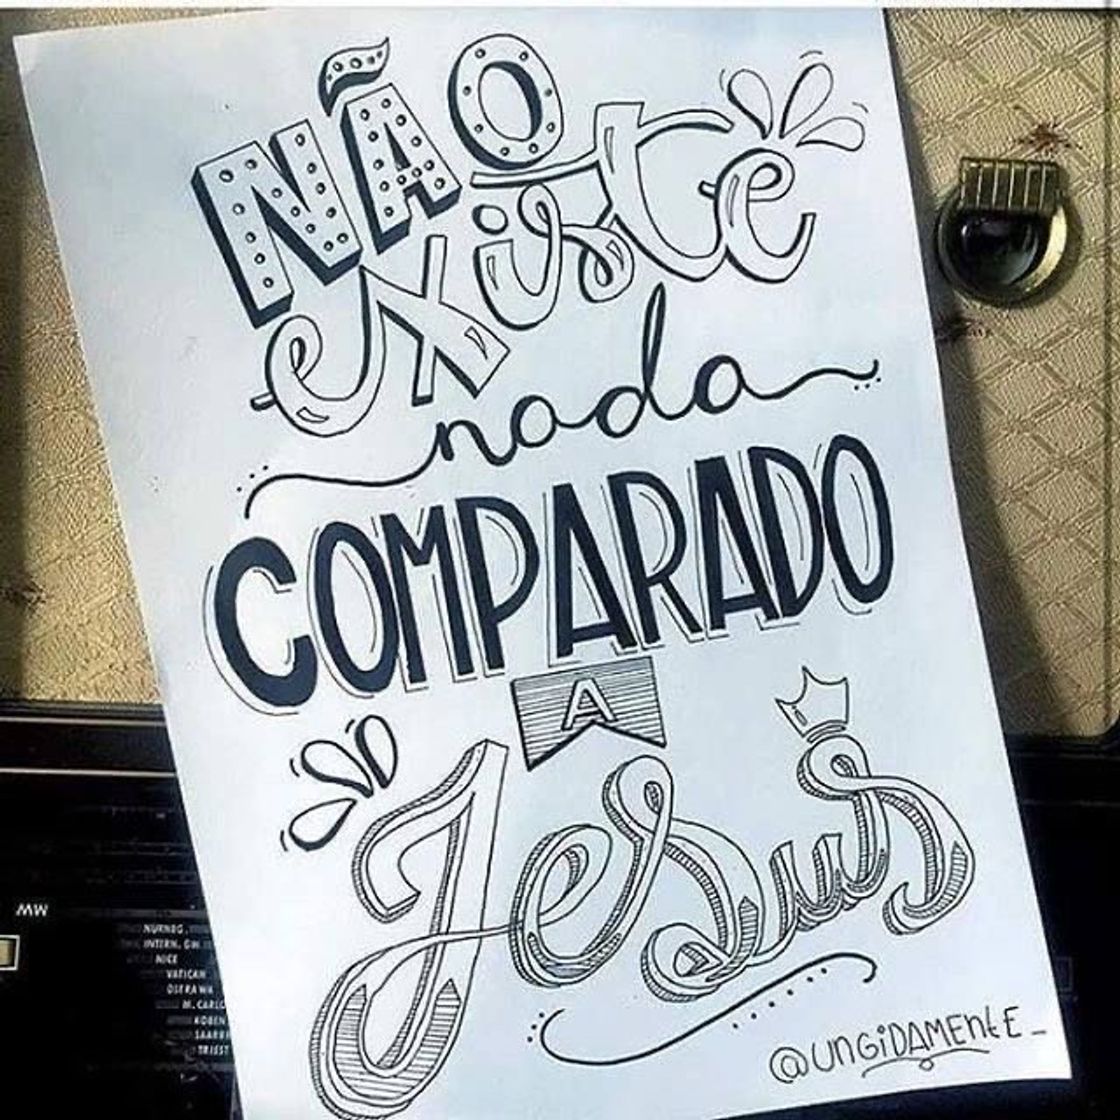 NÃO
existe
nada
COMPARADO
A
Jesus
@UNGIDAMENTE_
MW
NURNBG.
INTERN. GW
NICE
VATICAN
OSTRAWA
M. CARLO
KOBEN
SAARB
TRIEST